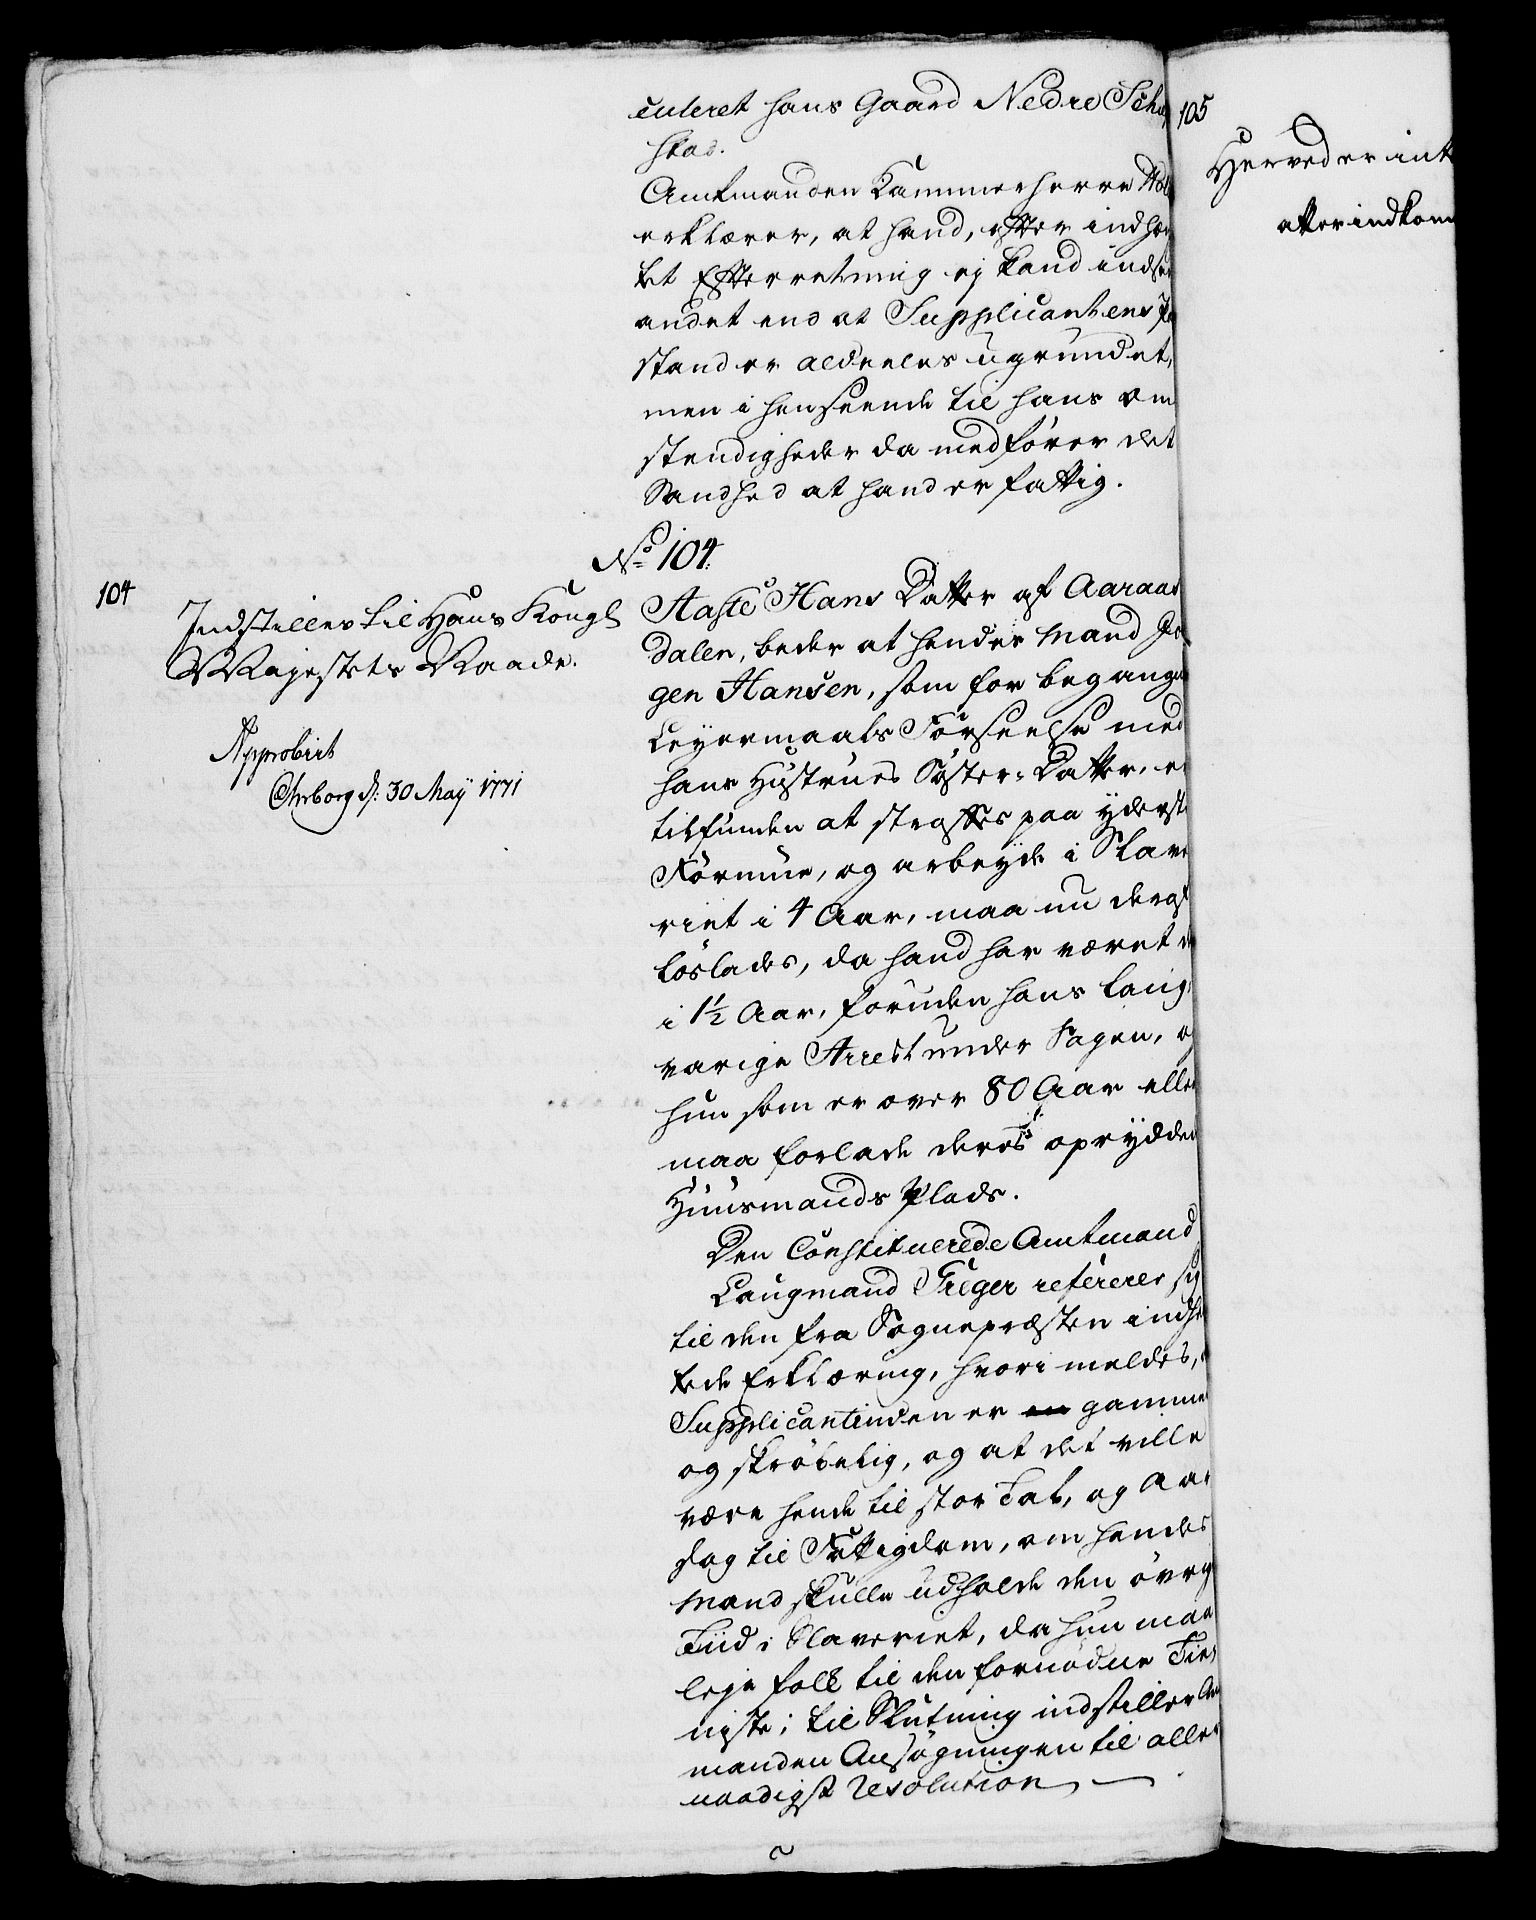 culeret hans Gaard Nedre
stad.
Amtmanden Kammerherre
erklærer, at hand, efter indhen
tet Efterretning ej kand indsee
andet end at Supplicantens
stand er aldeeles ugrundet,
men i henseende til hans om
stendigheder da medfører det
Sandhed at hand er fattig.
No 104.
104
Indstilles til Hans Kongl
Majestets Naade.
Approbirt
Chrborg d: 30 May 1771
Aaste Hans Datter af Aaraas
dalen, beder at hendes Mand
gen Hansen, som for begangen
Leyermaals Forseelse med
hans Hustrues Søster-Datter, er
tilfunden at straffes paa yderste
Formue, og arbeyde i Slave
riet i 4 Aar, maa nu deraf
løslades, da hand har været
i 1½ Aar, foruden hans lang
varige Arrest under Sagen, og
hun som er over 80 Aar eller
maa forlade deres opryddede
Huusmands Plads.
Den Constituerede Amtmand
Laugmand Treger refererer sig
til den fra Sognepræsten indhen
tede Erklæring, hvori meldes,
Supplicantinden er en gammel
og skrøbelig, og at det ville
være hende til stor Tab, og Aar
sag til Fattigdom, om hendes
Mand skulle udholde den øvrig
Tiid i Slaveriet, da hun maa
leje folk til den fornødne Tie
niste; til Slutning indstiller
manden Ansøgningen til aller
naadigst Resolution
105
Herved er
atter indkom